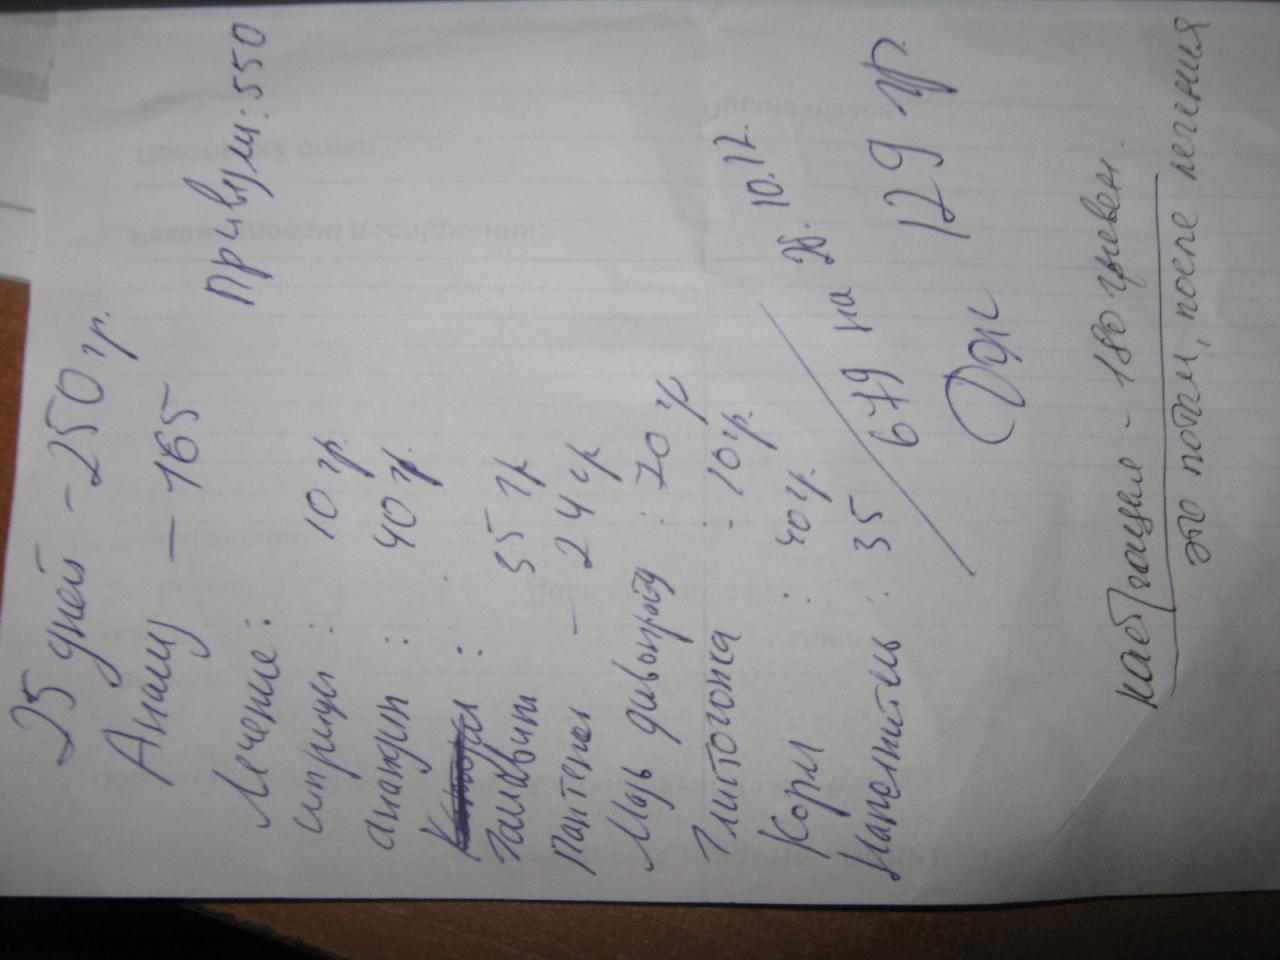 25 дней - 250 гр.
Анализ — 165
Привезли: 550
Лечение:
шприцы : 10 гр.
анандин : 40 гр.
: 35 гр
Пантенол — 24 гр
Мазь : 70 гр
Глистогонка : 10 гр.
Корм : 40 гр.
Наполнитель : 35
679 на 28. 10.12.
Долг 129 гр.
кастрация - 180 гривен.
это потом, после лечения